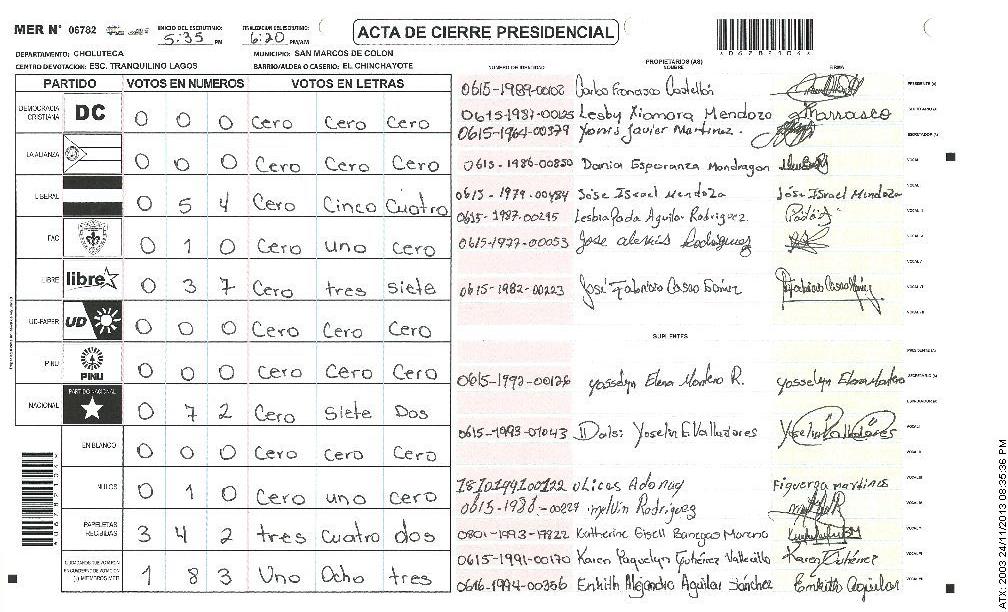 MER N° 06782 INICIO DEL ESCRUTINIO: 5:35 PM FINALIZACION DEL ESCRUTINIO: 6:20 PM/AM ACTA DE CIERRE PRESIDENCIAL
DEPARTAMENTO: CHOLUTECA MUNICIPIO: SAN MARCOS DE COLON
CENTRO DE VOTACION: ESC. TRANQUILINO LAGOS BARRIO/ALDEA O CASERIO: EL CHINCHAYOTE
PARTIDO VOTOS EN NUMEROS VOTOS EN LETRAS
DEMOCRACIA CRISTIANA DC 0 0 0 Cero Cero Cero
LA ALIANZA 0 0 0 Cero Cero Cero
LIBERAL 0 5 4 Cero Cinco Cuatro
FAC 0 1 0 Cero uno cero
LIBRE libre 0 3 7 Cero tres siete
UD-FAPER UD 0 0 0 Cero Cero Cero
PINU PINU 0 0 0 Cero Cero Cero
NACIONAL PARTIDO NACIONAL 0 7 2 Cero Siete Dos
EN BLANCO 0 0 0 Cero Cero Cero
NULOS 0 1 0 Cero uno cero
PAPELETAS RECIBIDAS 3 4 2 tres Cuatro dos
1 8 3 Uno Ocho tres
PROPIETARIOS (AS)
NUMERO DE IDENTIDAD NOMBRE FIRMA
0615-1989-00102 Carlos Francisco Castellón
0615-1987-00125 Lesby Xiomara Mendoza
0615-1964-00379 Yonis Javier Martinez.
0615-1986-00850 Dania Esperanza Mondragon
0615-1979-00484 Jose Israel Mendoza Jose Israel Mendoza
0615-1987-00295 Lesbia Aguilar Rodriguez
0615-1977-00053 Jose alexis Rodriguez
0615-1982-00223 José Fabricio
SUPLENTES
0615-1992-00126 yosselyn Elena Montero R. yosselyn Elena Montero
0615-1993-01043 Yoselin E Valladares
Adonay Figueroa martinez
melvin Rodriguez
0801-1993-17822 Katherine Gisell Banegas Moreno
0615-1991-00170 Karen Gutiérrez Vallecillo Karen Gutiérrez
0616-1994-00356 Alejandro Aguilar Sánchez Aguilar
ATX-2003 24/11/2013 08:35:36 PM